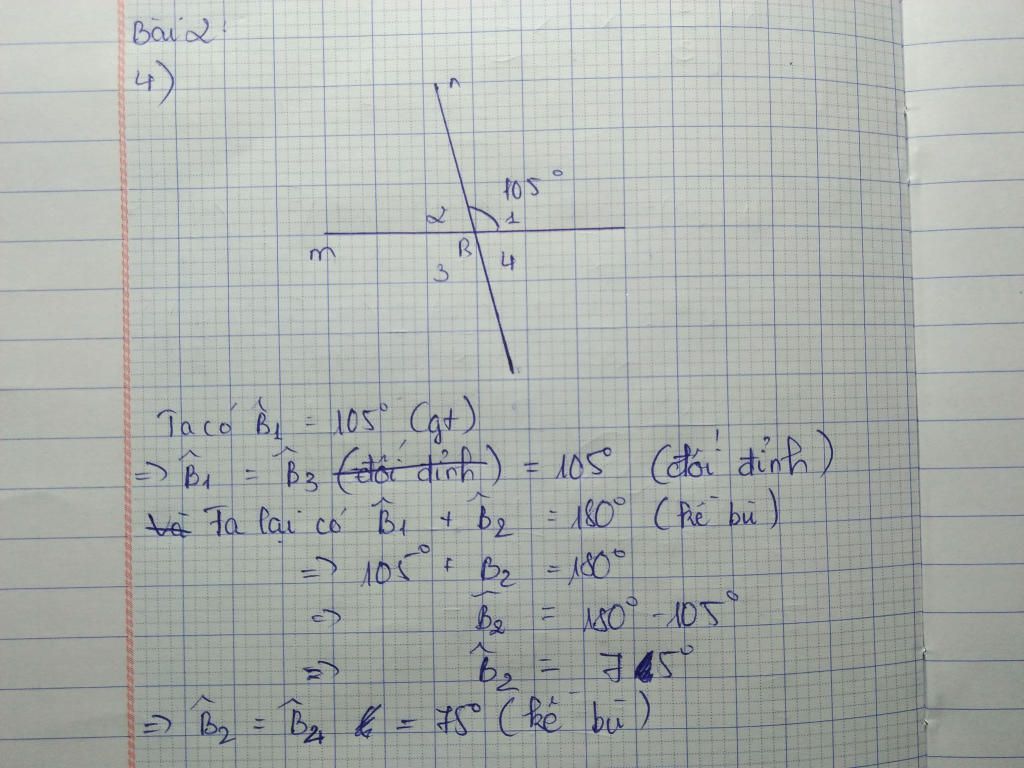 Bài 2:
4)
n
105°
2 1
m B 4
3
Ta có B̂1 = 105° (gt)
=> B̂1 = B̂3 (đối đỉnh) = 105° (đối đỉnh)
Vì Ta lại có B̂1 + B̂2 = 180° (kề bù)
=> 105° + B2 = 180°
=> B̂2 = 180° - 105°
=> B̂2 = 75°
=> B̂2 = B̂4 = 75° (kề bù)